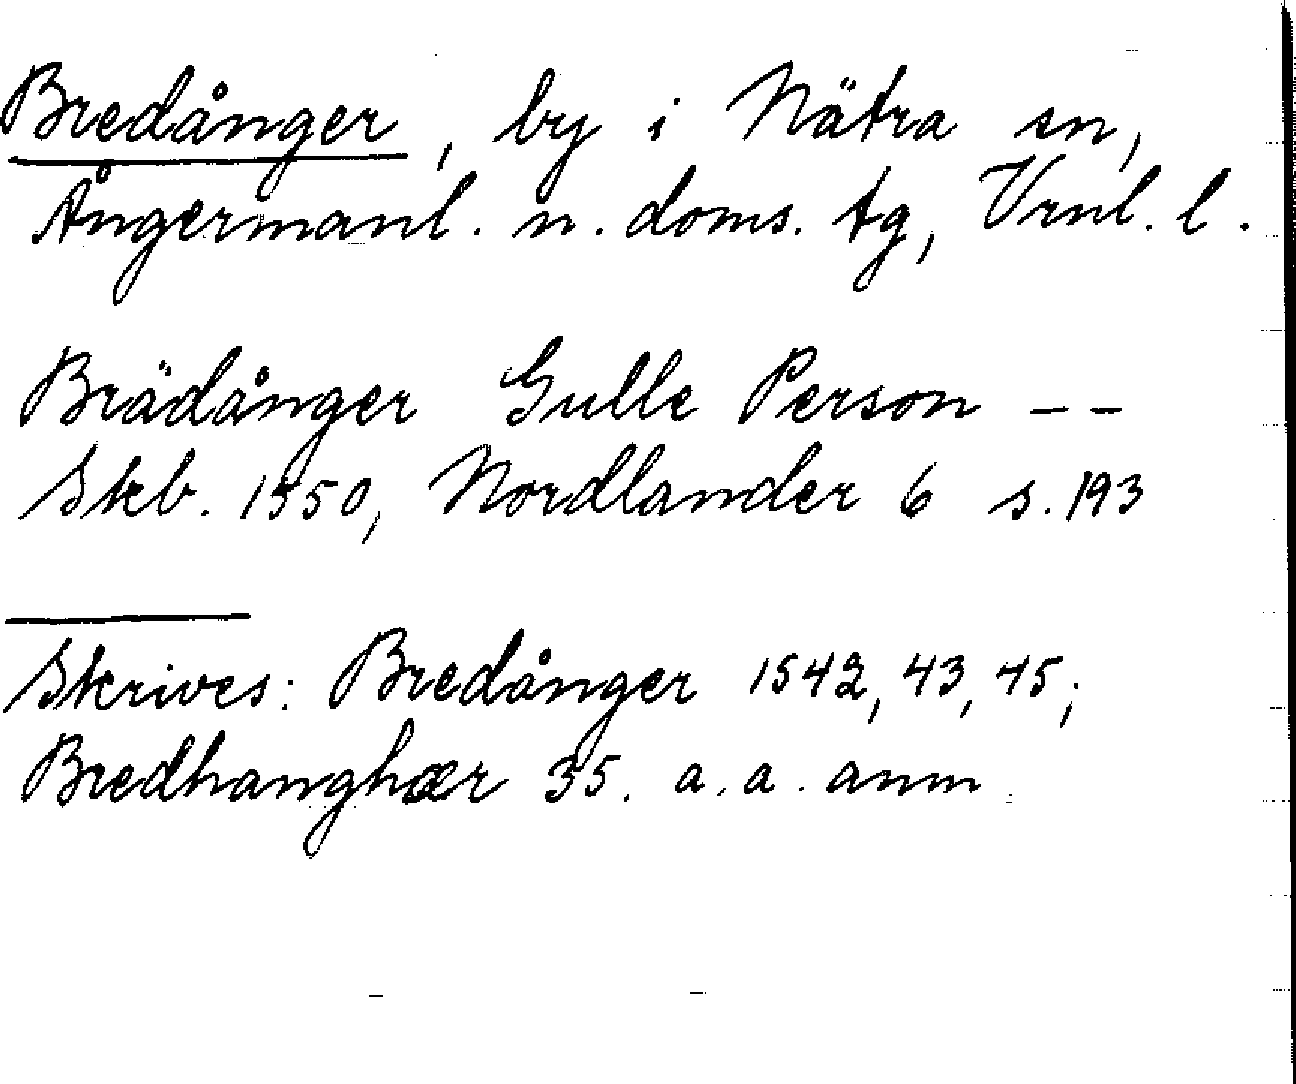 Bredånger, by i Nätra sn,
Ångermanl. n. doms. tg, Vrnl. l.
Brädånger Gulle Person --
Skb. 1550, Nordlander 6 s. 193
Skrives: Bredånger 1542, 43, 45;
Bredhanghær 35. a. a. anm.